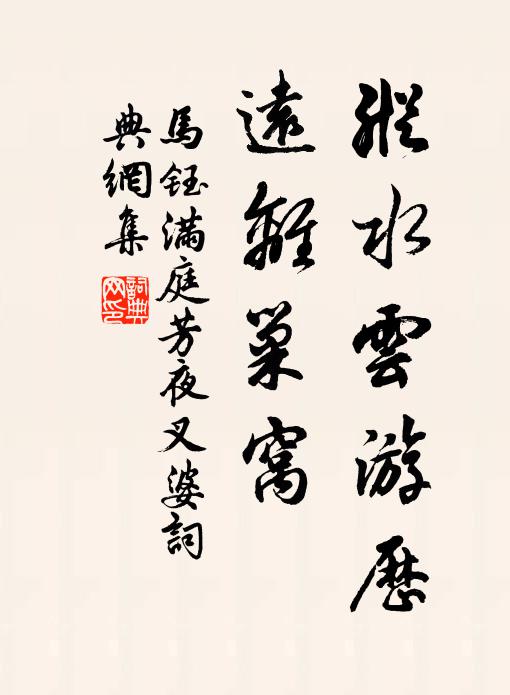 縱水雲游歷
遠離巢窩
馬鈺滿庭芳夜叉婆詞
典網集
詞典
网印